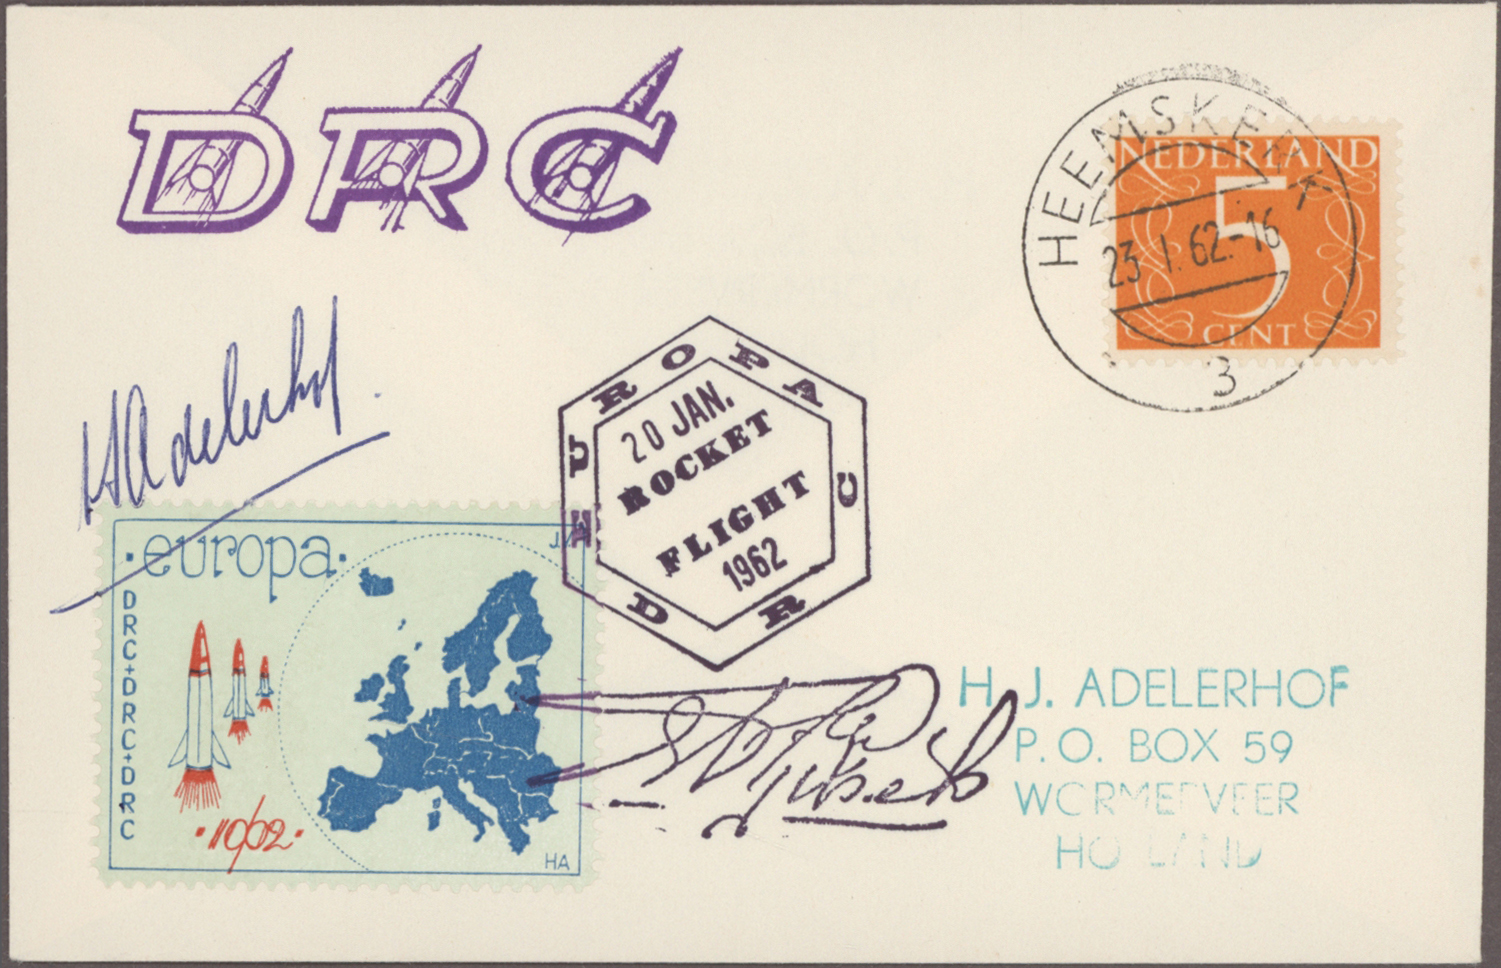 DRC
HEEMSKERK
23.1.62.-16
3
NEDERLAND
5
CENT
HAdelerhof.
EUROPA
DRC
20 JAN.
ROCKET
FLIGHT
1962
·europa·
DRC+DRC+DRC
·1962·
HA
H.J. ADELERHOF
P.O. BOX 59
WORMERVEER
HOLLAND